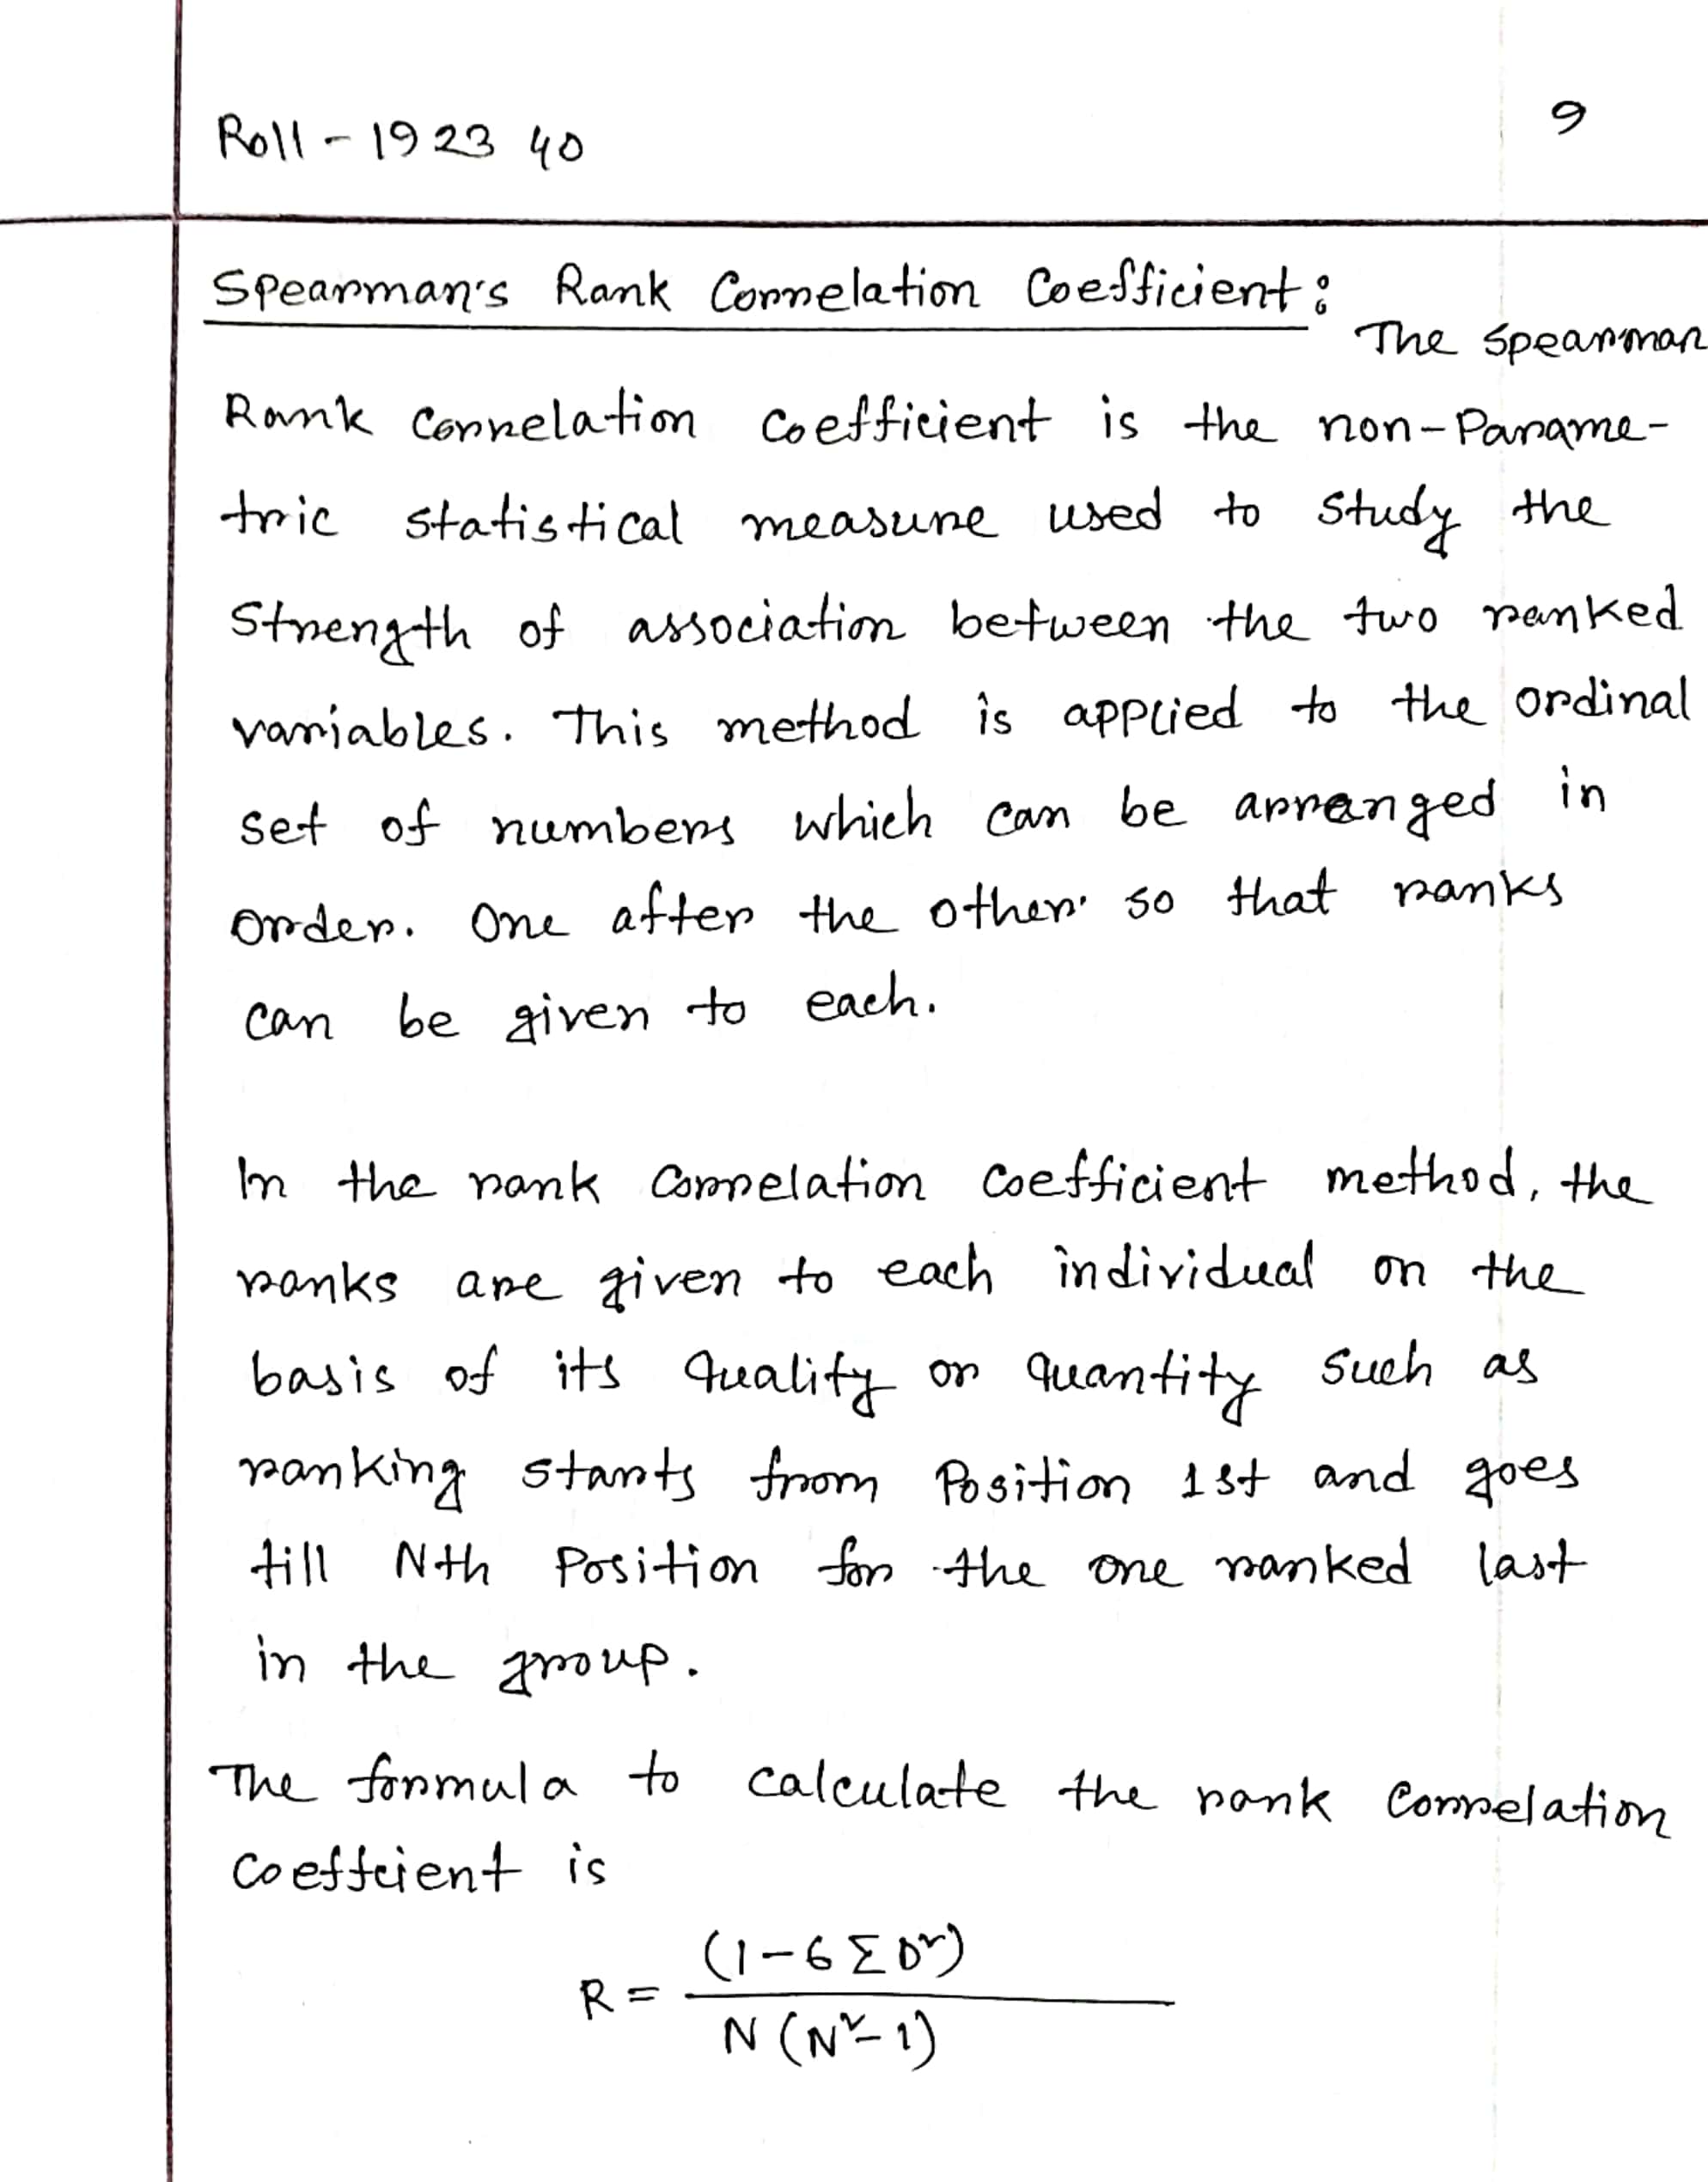 Roll - 1923 40
9
Spearman's Rank Correlation Coefficient:
The Spearman
Rank Correlation Coefficient is the non-Parame-
tric statistical measure used to study the
Strength of association between the two ranked
variables. This method is applied to the ordinal
set of numbers which can be arranged in
order. One after the other so that ranks
can be given to each.
In the rank Correlation Coefficient method, the
ranks are given to each individual on the
basis of its quality or quantity such as
ranking starts from Position 1st and goes
till Nth Position for the one ranked last
in the group.
The formula to calculate the rank Correlation
coeffcient is
R = (1-6ΣD²)
N(N²-1)